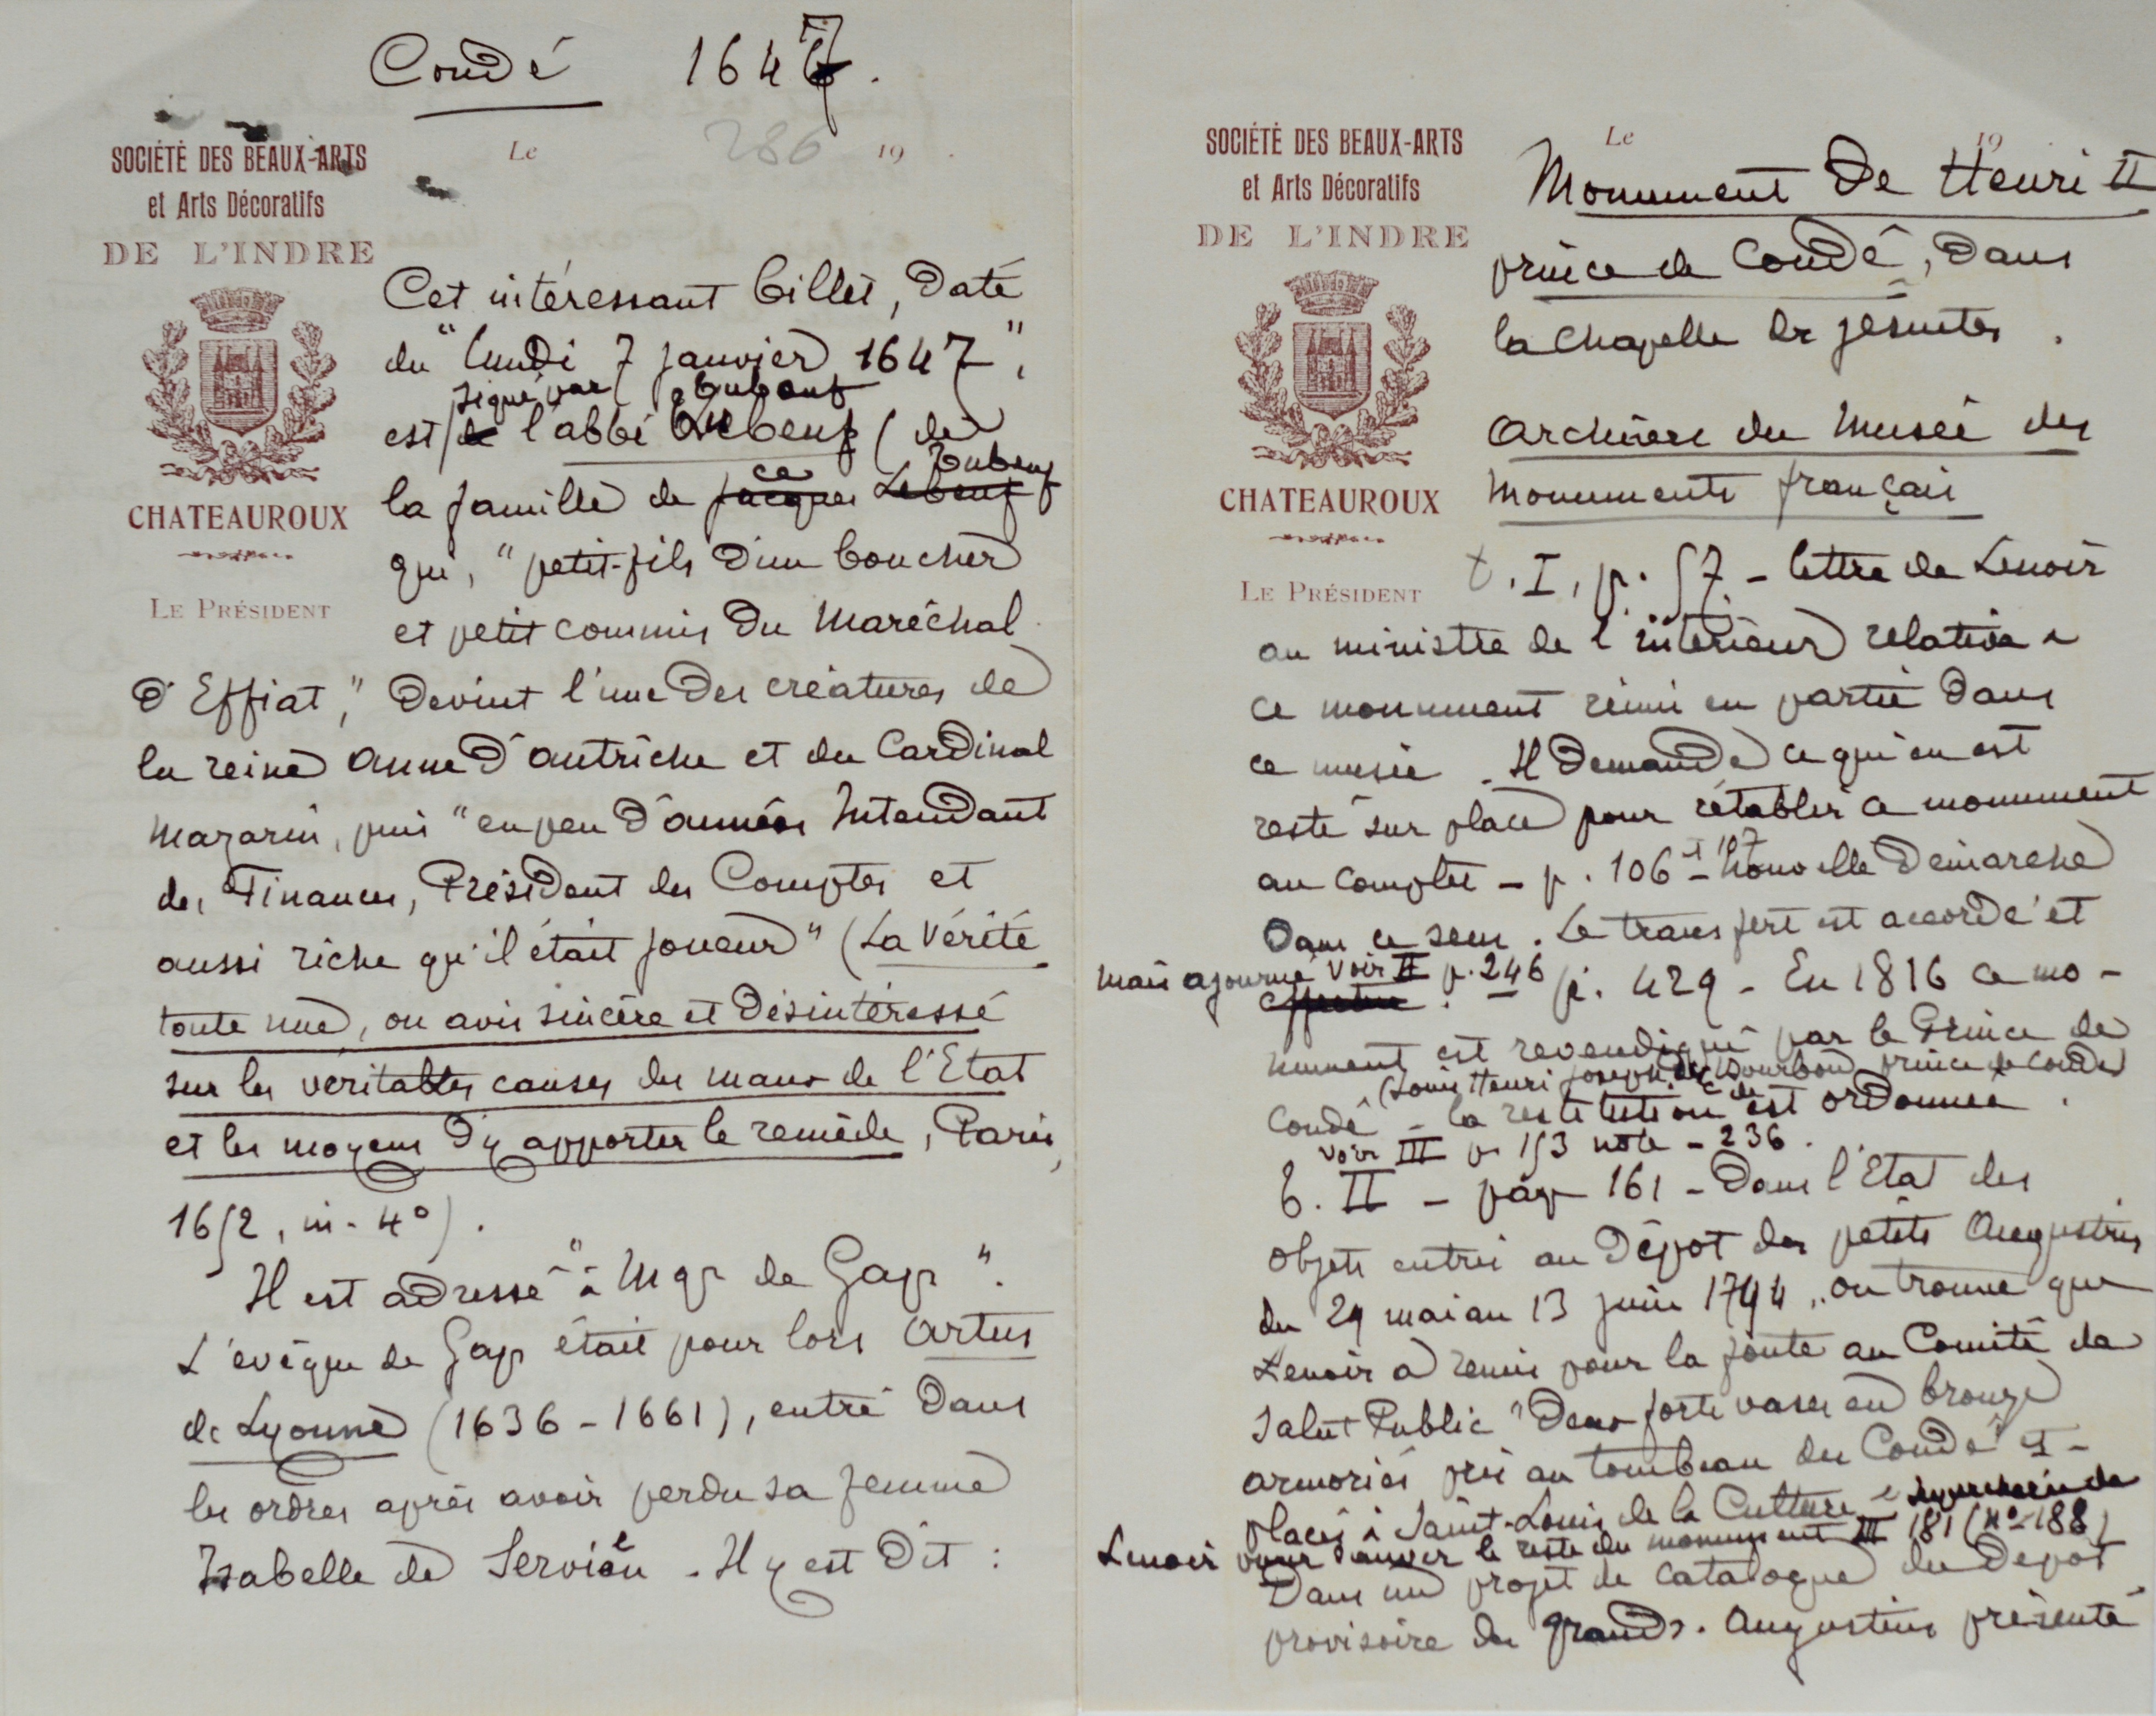 Condé 1647.
SOCIÉTÉ DES BEAUX-ARTS
et Arts Décoratifs
DE L'INDRE
CHATEAUROUX
LE PRÉSIDENT
Le 286 19 .
Cet intéressant billet, daté
du "lundi 7 janvier 1647",
signé par Tubeuf
est de l'abbé Lebeuf (de
ce Tubeuf
la famille de Jacques Lebeuf
qui, "petit-fils d'un boucher
et petit commis du Maréchal
d'Effiat," devint l'une des créatures de
la reine Anne d'Autriche et du Cardinal
Mazarin, puis "en peu d'années Intendant
des Finances, Président des Comptes et
aussi riche qu'il était joueur" (La Vérité
toute nue, ou avis sincère et désintéressé
sur les véritables causes des maux de l'Etat
et les moyens d'y apporter le remède, Paris,
1652, in-4°).
Il est adressé "à Mgr de Gap".
L'évêque de Gap était pour lors Artus
de Lyonne (1636-1661), entré dans
les ordres après avoir perdu sa femme
Isabelle de Servien. Il y est dit :
SOCIÉTÉ DES BEAUX-ARTS
et Arts Décoratifs
DE L'INDRE
CHATEAUROUX
LE PRÉSIDENT
Le 19
Monument de Henri II
prince de Condé, dans
la chapelle des Jésuites.
Archives du Musée des
Monuments français
t. I, p. 57 - lettre de Lenoir
au ministre de l'intérieur relative à
ce monument réuni en partie dans
ce musée. Il demande ce qui en est
resté sur place pour rétablir ce monument
au complet - p. 106 et 107 - Nouvelle démarche
dans ce sens. Le transfert est accordé et
mais ajourné voir II p. 246
effectué. p. 429 - En 1816 ce mo-
nument est revendiqué par le Prince de
(Louis Henri Joseph de Bourbon prince de Condé)
Condé - la restitution est ordonnée.
voir III p. 153 note - 236.
t. II - page 161 - Dans l'Etat des
objets entrés au Dépôt des petits Augustins
du 29 mai au 13 juin 1794, on trouve que
Lenoir a remis pour la fonte au Comité de
Salut Public "Deux forts vases en bronze
armoriés pris au tombeau des Condé et
placés à Saint-Louis de la Culture
Lenoir pour sauver le reste du monument III 181 (N° 188)
Dans un projet de catalogue du Dépôt
provisoire des grands-Augustins présenté